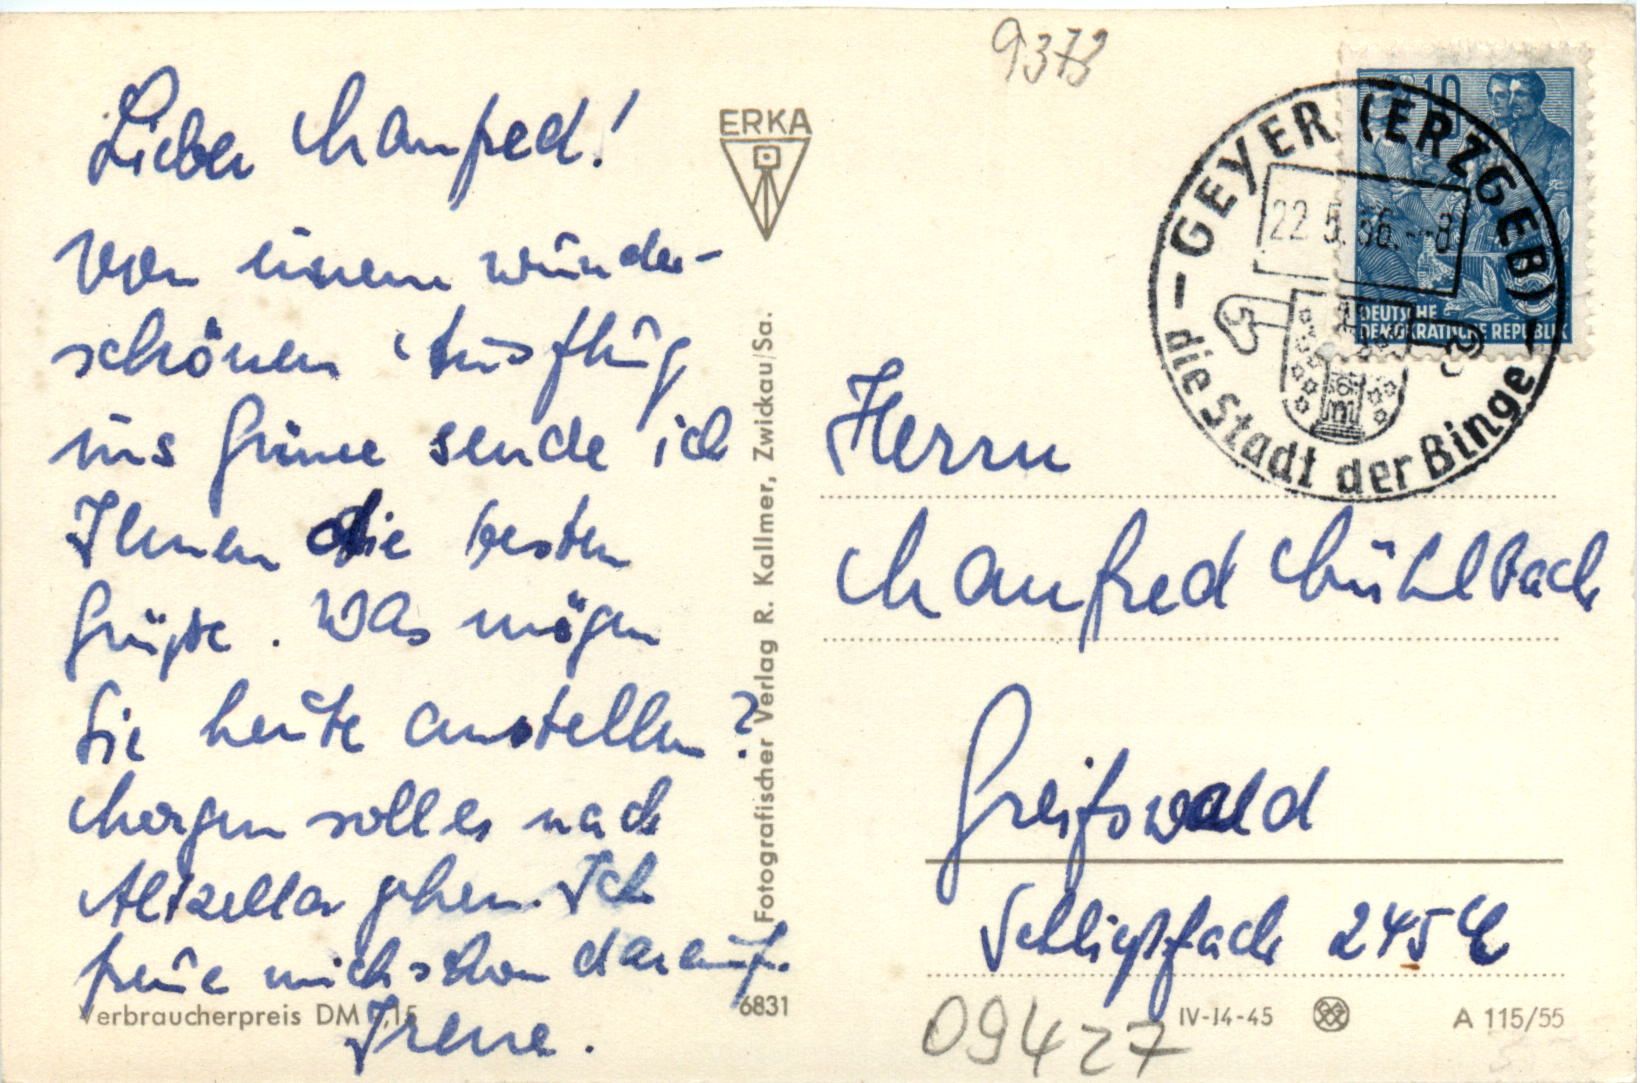 Lieber Manfred!
Von einem wunder-
schönen Ausflug
ins Grüne sende ich
Ihnen die besten
Grüße. Was mögen
Sie heute anstellen?
Morgen soll es nach
Altzella gehen. Ich
freue mich schon darauf.
Irene.
Verbraucherpreis DM 0,15
6831
ERKA
Fotografischer Verlag R. Kallmer, Zwickau/Sa.
9378
10
DEUTSCHE
DEMOKRATISCHE REPUBLIK
GEYER (ERZGEB)
22.5.56.--8
die Stadt der Binge
Herrn
Manfred Mühlbach
Greifswald
Schließfach 245
IV-14-45
A 115/55
09427